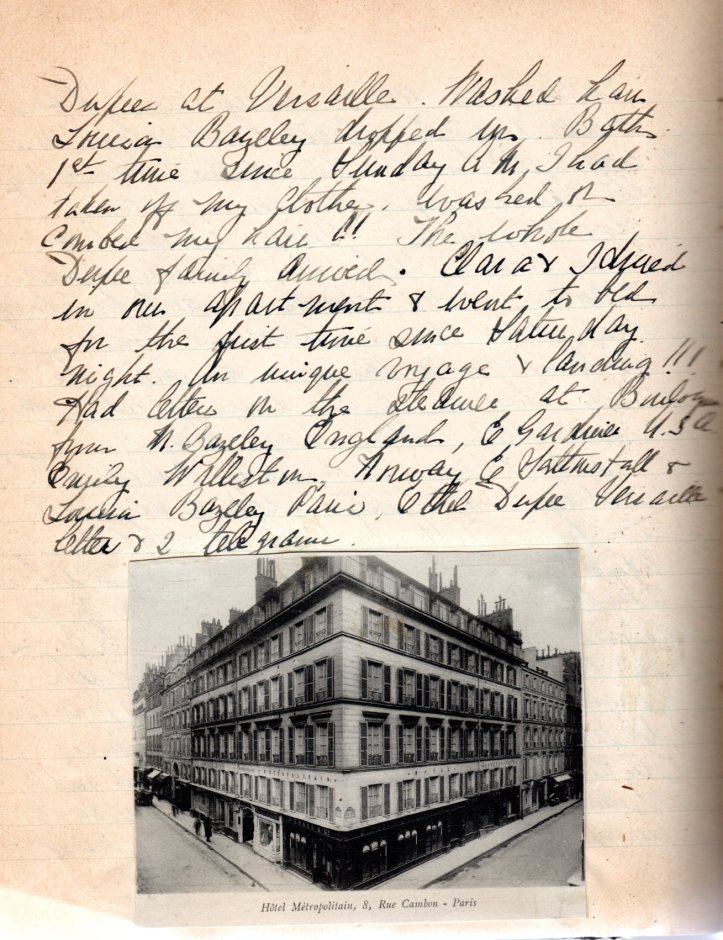 Dupee at Versaille. Washed hair
Louisa Bazeley dropped in. Bath
1st time since Sunday A.M. I had
taken off my clothes, washed or
combed my hair!! The whole
Dupee family arrived. Clara & I dined
in our apartment & went to bed
for the first time since Saturday
night. An unique voyage & landing!!!
Had letters on the steamer at Boulogne
from N. Bazeley England, E Gardner U.S.A
Emily Williston, Norway, E Saltonstall &
Louisa Bazeley Paris, Ethel Dupee Versaille
letter & 2 telegrams.
HOTEL METROPOLITAIN
HOTEL
Hôtel Métropolitain, 8, Rue Cambon - Paris